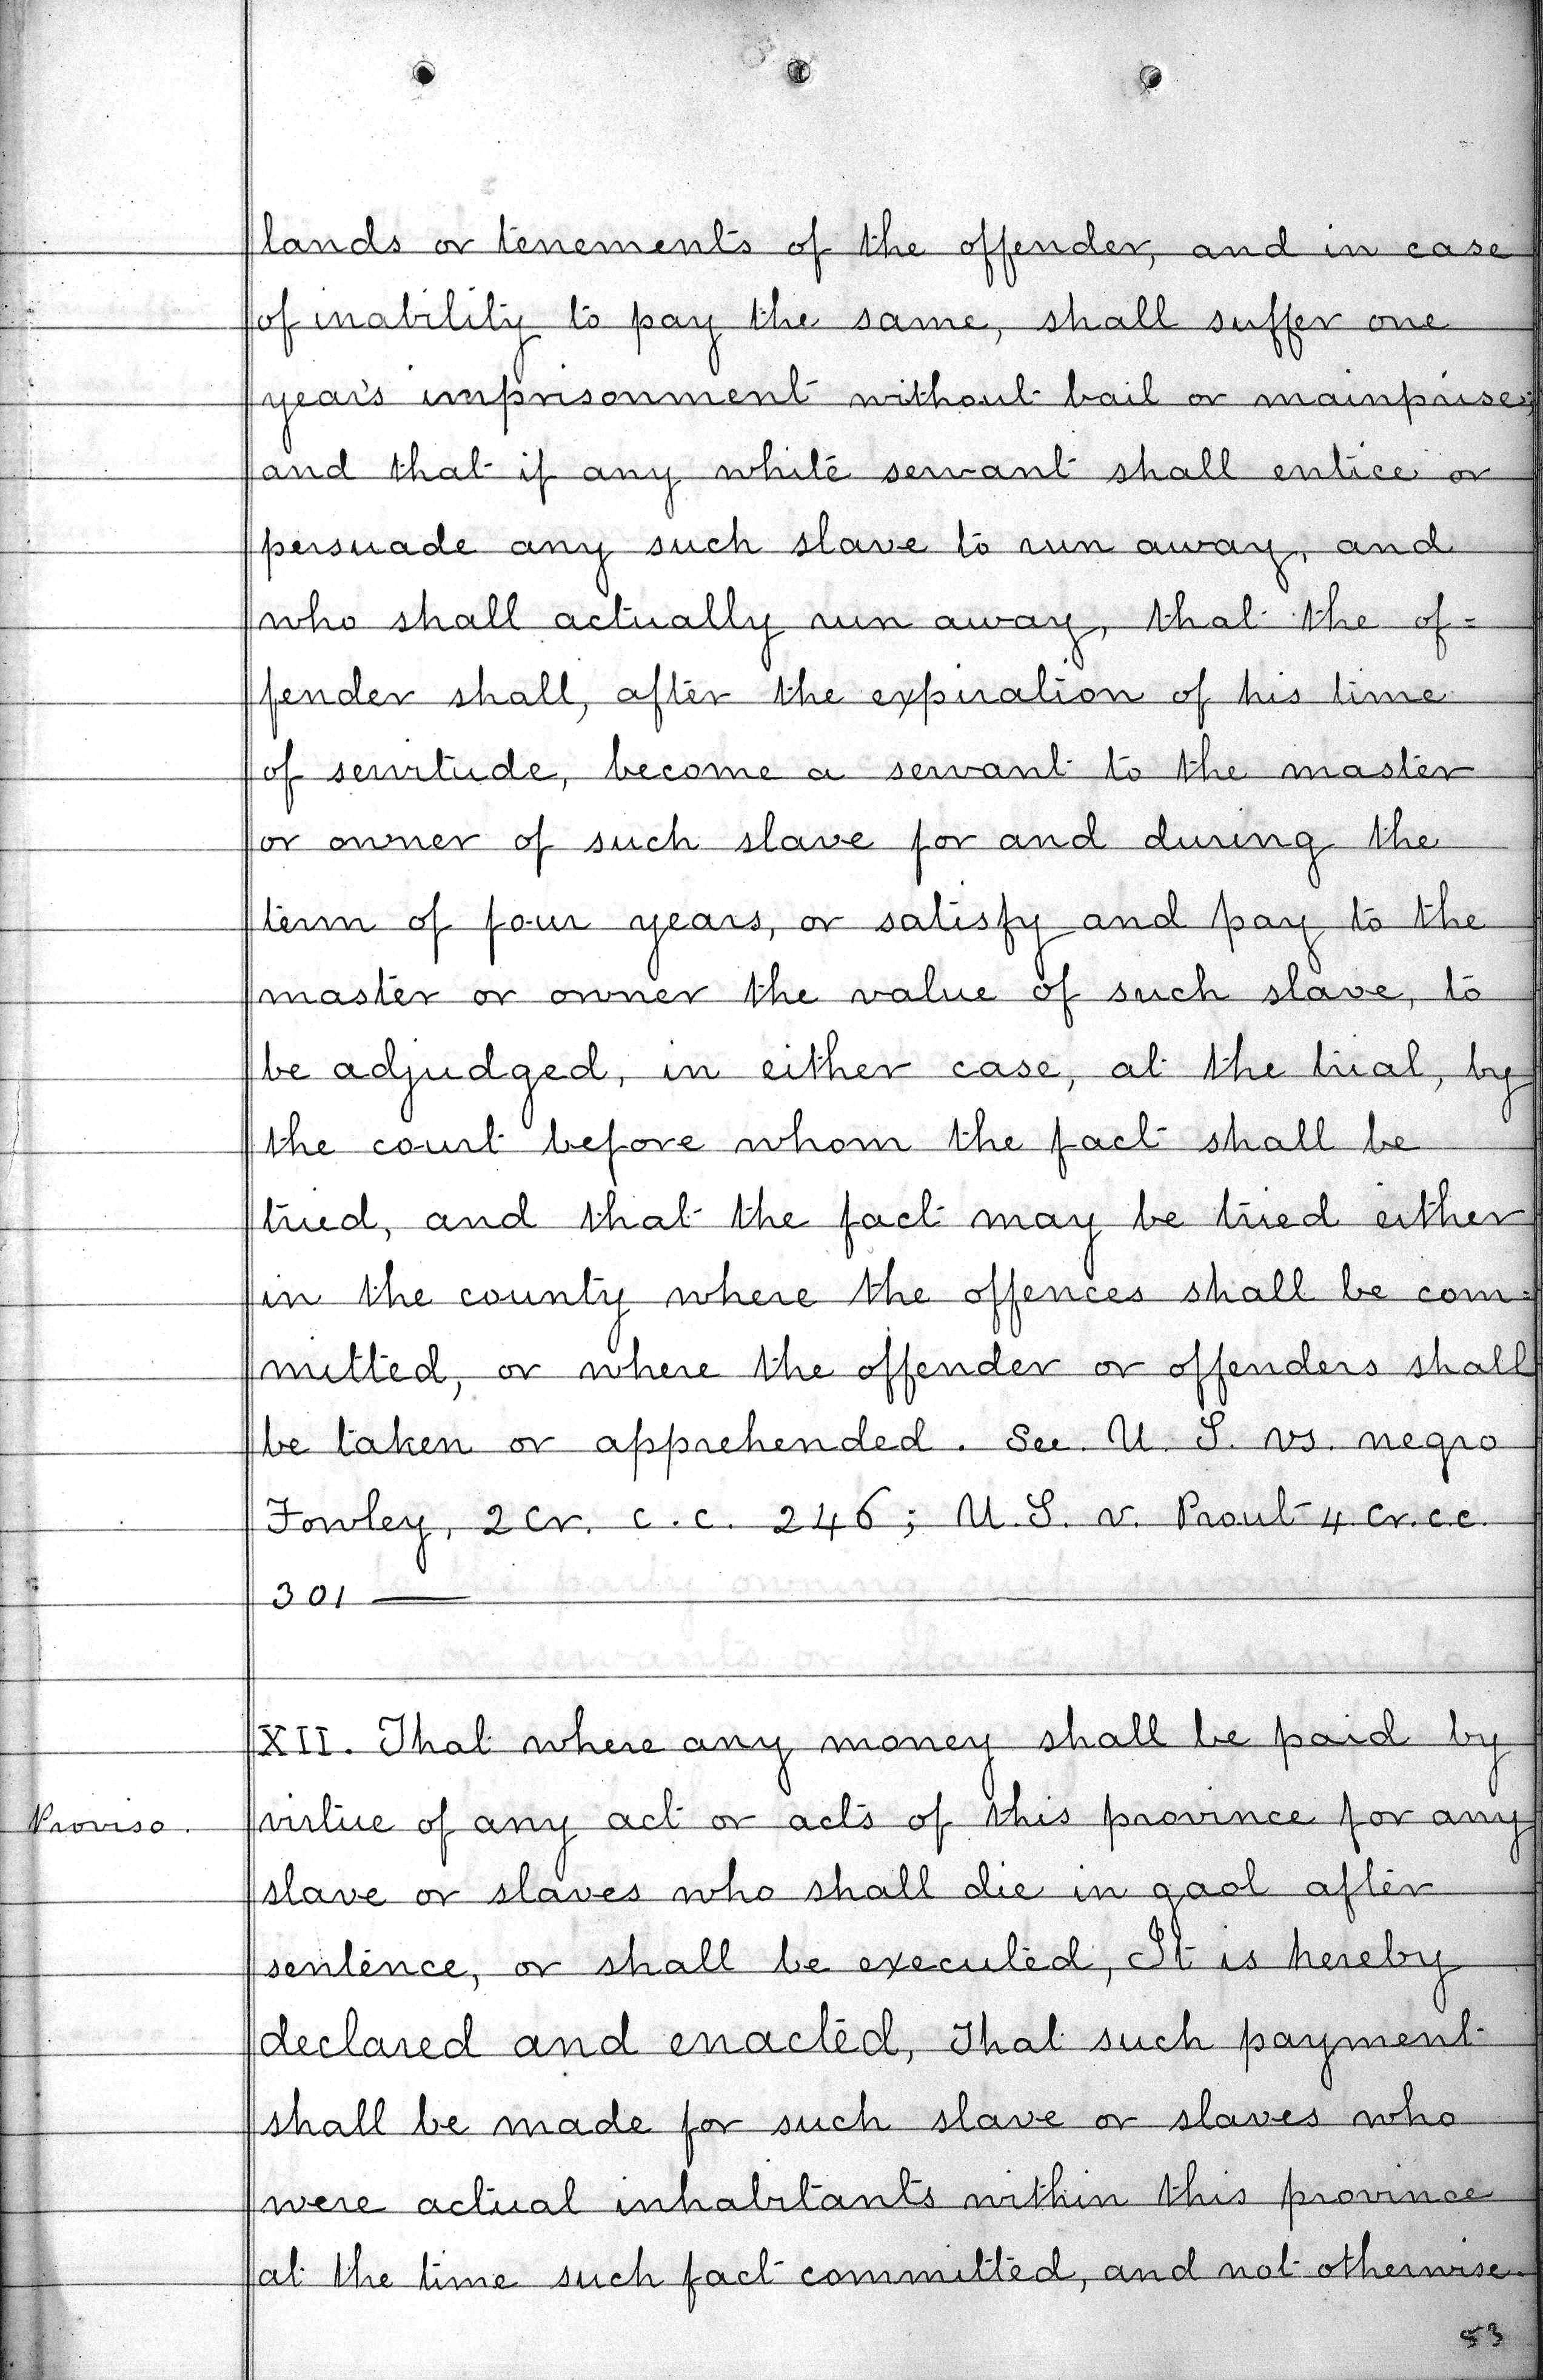 lands or tenements of the offender, and in case
of inability to pay the same, shall suffer one
year's imprisonment without bail or mainprise;
and that if any white servant shall entice or
persuade any such slave to run away, and
who shall actually run away, that the of=
fender shall, after the expiration of his time
of servitude, become a servant to the master
or owner of such slave for and during the
term of four years, or satisfy and pay to the
master or owner the value of such slave, to
be adjudged, in either case, at the trial, by
the court before whom the fact shall be
tried, and that the fact may be tried either
in the county where the offences shall be com=
mitted, or where the offender or offenders shall
be taken or apprehended. See. U. S. vs. negro
Fowley, 2 Cr. c.c. 246; U.S. v. Prout 4 Cr.c.c.
301 —
XII. That where any money shall be paid by
Proviso. virtue of any act or acts of this province for any
slave or slaves who shall die in gaol after
sentence, or shall be executed, It is hereby
declared and enacted, That such payment
shall be made for such slave or slaves who
were actual inhabitants within this province
at the time such fact committed, and not otherwise.
53